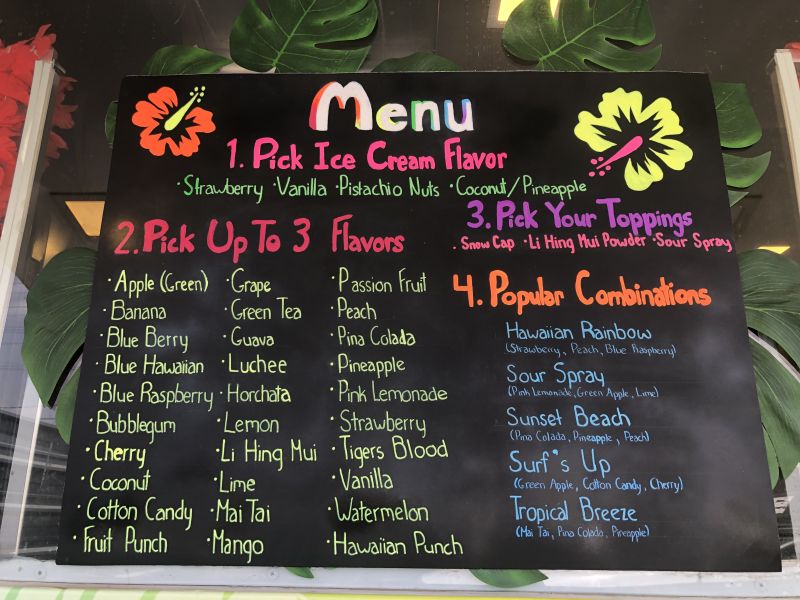 Menu
1. Pick Ice Cream Flavor
·Strawberry ·Vanilla ·Pistachio Nuts ·Coconut/Pineapple
2. Pick Up To 3 Flavors
·Apple (Green)
·Banana
·Blue Berry
·Blue Hawaiian
·Blue Raspberry
·Bubblegum
·Cherry
·Coconut
·Cotton Candy
·Fruit Punch
·Grape
·Green Tea
·Guava
·Luchee
·Horchata
·Lemon
·Li Hing Mui
·Lime
·Mai Tai
·Mango
·Passion Fruit
·Peach
·Pina Colada
·Pineapple
·Pink Lemonade
·Strawberry
·Tigers Blood
·Vanilla
·Watermelon
·Hawaiian Punch
3. Pick Your Toppings
·Snow Cap ·Li Hing Mui Powder ·Sour Spray
4. Popular Combinations
Hawaiian Rainbow
(Strawberry, Peach, Blue Raspberry)
Sour Spray
(Pink Lemonade, Green Apple, Lime)
Sunset Beach
(Pina Colada, Pineapple, Peach)
Surf's Up
(Green Apple, Cotton Candy, Cherry)
Tropical Breeze
(Mai Tai, Pina Colada, Pineapple)